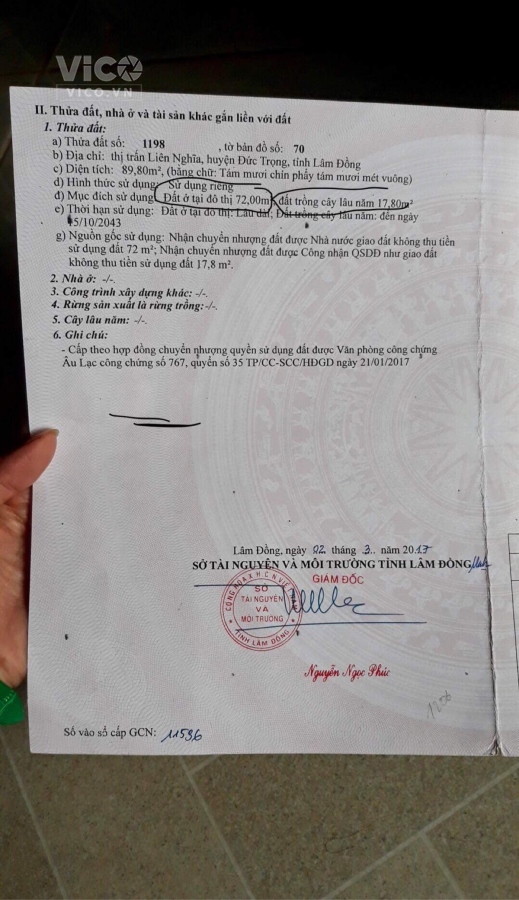 ViCO
VICO.VN
II. Thửa đất, nhà ở và tài sản khác gắn liền với đất
1. Thửa đất:
a) Thửa đất số: 1198 , tờ bản đồ số: 70
b) Địa chỉ: thị trấn Liên Nghĩa, huyện Đức Trọng, tỉnh Lâm Đồng
c) Diện tích: 89,80m², (bằng chữ: Tám mươi chín phẩy tám mươi mét vuông)
d) Hình thức sử dụng: Sử dụng riêng
đ) Mục đích sử dụng: Đất ở tại đô thị 72,00m², đất trồng cây lâu năm 17,80m²
e) Thời hạn sử dụng: Đất ở tại đô thị: Lâu dài; Đất trồng cây lâu năm: đến ngày
15/10/2043
g) Nguồn gốc sử dụng: Nhận chuyển nhượng đất được Nhà nước giao đất không thu tiền
sử dụng đất 72 m²; Nhận chuyển nhượng đất được Công nhận QSDĐ như giao đất
không thu tiền sử dụng đất 17,8 m².
2. Nhà ở: -/-.
3. Công trình xây dựng khác: -/-.
4. Rừng sản xuất là rừng trồng: -/-.
5. Cây lâu năm: -/-.
6. Ghi chú:
- Cấp theo hợp đồng chuyển nhượng quyền sử dụng đất được Văn phòng công chứng
Âu Lạc công chứng số 767, quyển số 35 TP/CC-SCC/HĐGD ngày 21/01/2017
Lâm Đồng, ngày 02 tháng 3 năm 2017
SỞ TÀI NGUYÊN VÀ MÔI TRƯỜNG TỈNH LÂM ĐỒNG
GIÁM ĐỐC
SỞ
TÀI NGUYÊN
VÀ
MÔI TRƯỜNG
TỈNH LÂM ĐỒNG
Nguyễn Ngọc Phúc
Số vào sổ cấp GCN: 11596